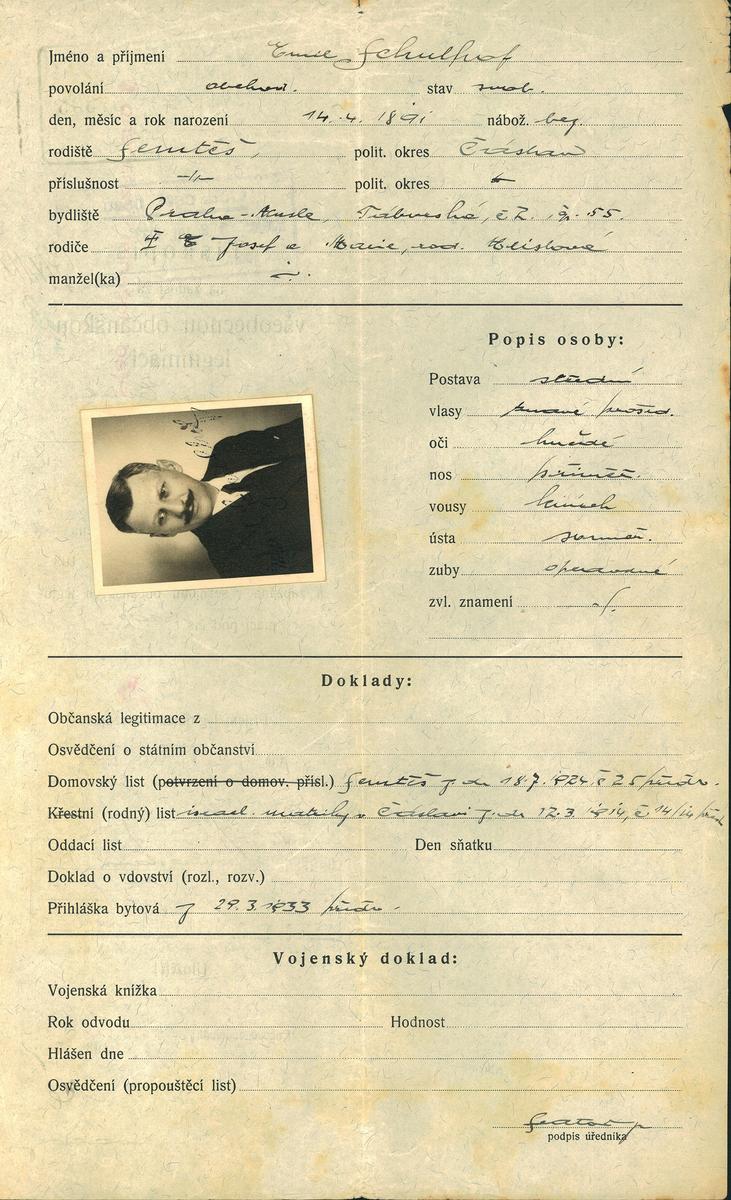 Jméno a příjmení Emil Schulhof
povolání obchod. stav svob.
den, měsíc a rok narození 14.4. 1891 nábož. bez.
rodiště Semtěš, polit. okres Čáslav
příslušnost -"- polit. okres
bydliště Praha-Nusle, Táborská, č. 55.
rodiče Josef a Marie, roz.
manžel(ka) ÷.
Popis osoby:
Postava střední
vlasy tmavé prošed.
oči hnědé
nos přiměř.
vousy knírek
ústa souměr.
zuby opravované
zvl. znamení -/.
Doklady:
Občanská legitimace z
Osvědčení o státním občanství
Domovský list (potvrzení o domov. přísl.) Semtěš z de 18.7.1924 č 25/
Křestní (rodný) list israel. matriky v Čáslavi z de 12.3. 1914, č. 14/14
Oddací list Den sňatku
Doklad o vdovství (rozl., rozv.)
Přihláška bytová z 29.3.1933
Vojenský doklad:
Vojenská knížka
Rok odvodu Hodnost
Hlášen dne
Osvědčení (propouštěcí list)
podpis úředníka